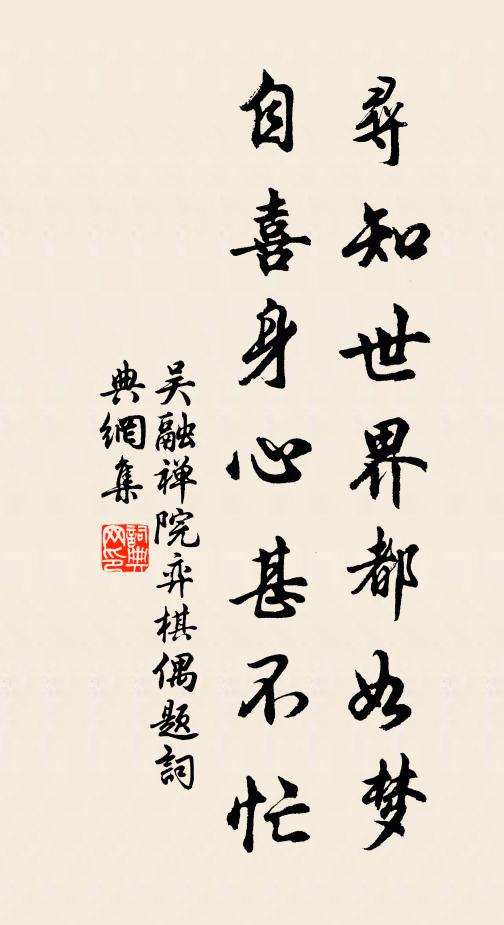 尋知世界都如梦
自喜身心甚不忙
吴融禅院弈棋偶题詞
典網集
詞典網印